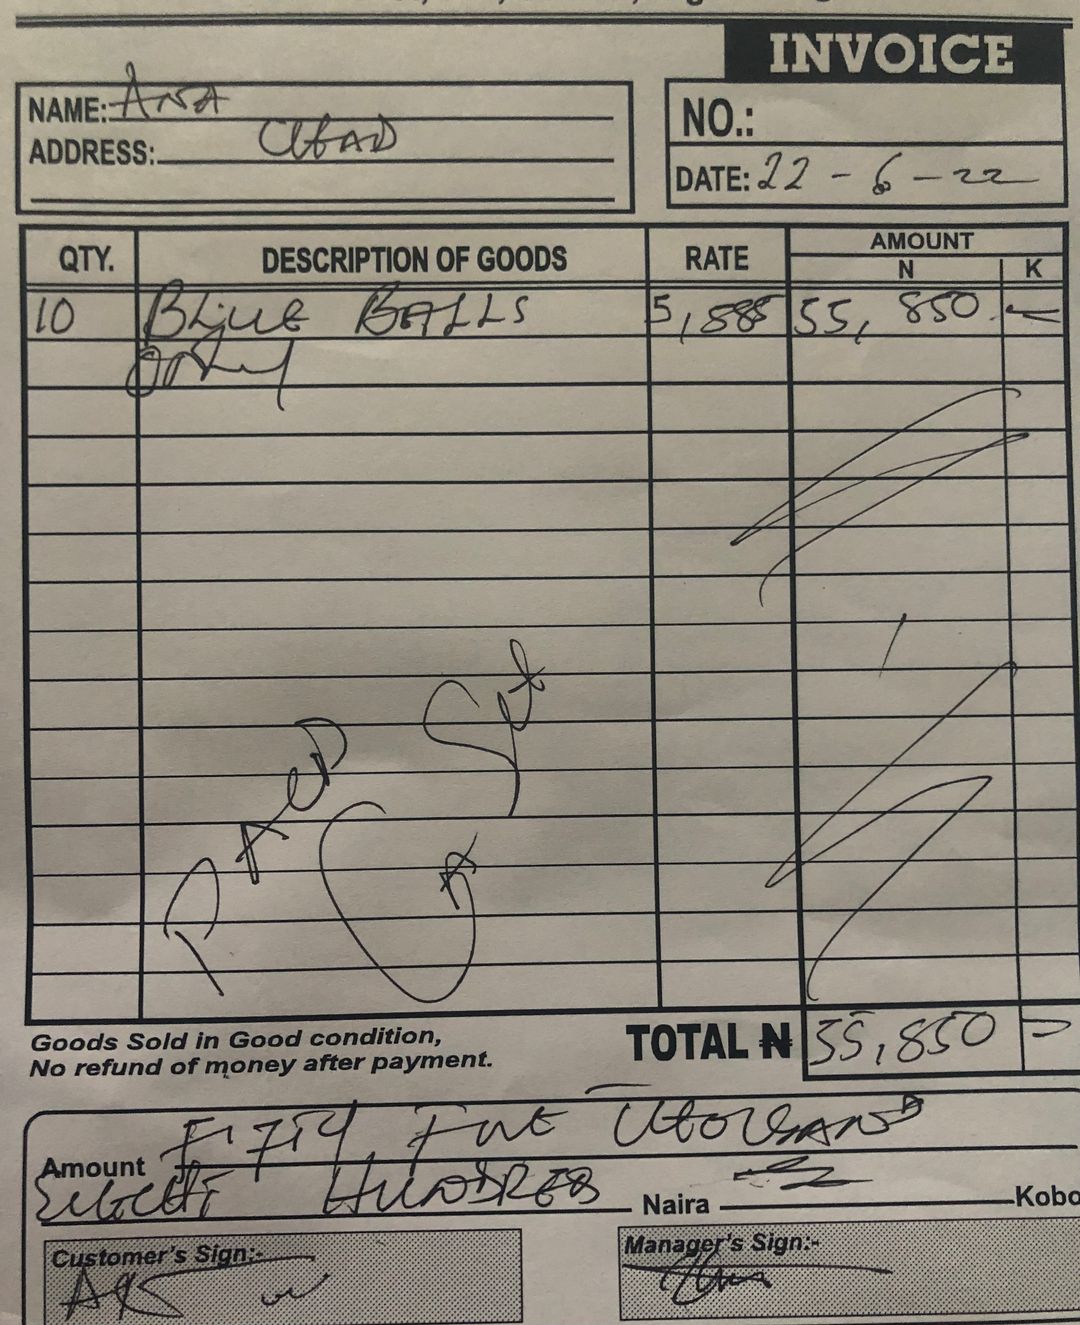 INVOICE
NAME: ANA
ADDRESS:
NO.:
DATE: 22 - 6 - 22
QTY. DESCRIPTION OF GOODS RATE AMOUNT
N K
10 BLUE BALLS 5,585 55, 850 -
only
PAID
Goods Sold in Good condition,
No refund of money after payment.
TOTAL ₦ 55,850 -
Amount FIFTY FIVE THOUSAND
EIGHT HUNDRED Naira Kobo
Customer's Sign:-
Manager's Sign:-